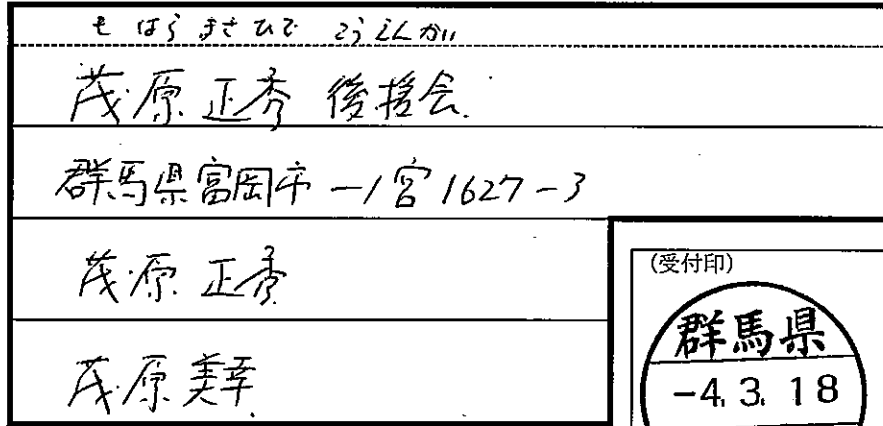 もはら まさひで こうえんかい
茂原 正秀 後援会
群馬県富岡市一ノ宮1627-3
茂原 正秀
茂原 美幸
(受付印)
群馬県
-4.3.18